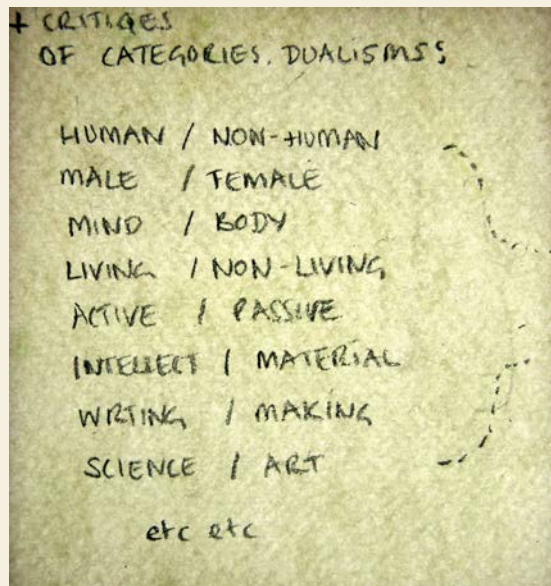 + CRITIQES
OF CATEGORIES. DUALISMS:
HUMAN / NON-HUMAN
MALE / FEMALE
MIND / BODY
LIVING / NON-LIVING
ACTIVE / PASSIVE
INTELLECT / MATERIAL
WRTING / MAKING
SCIENCE / ART
etc etc